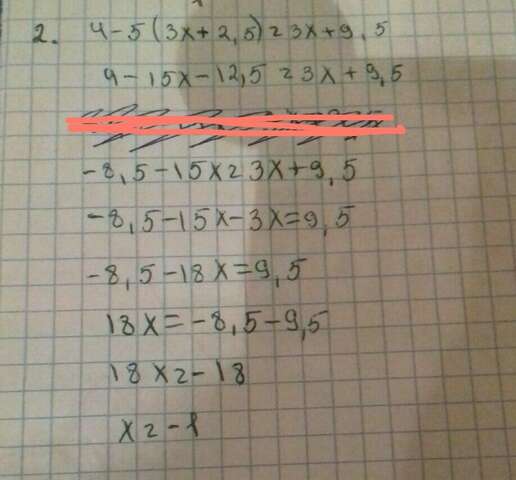 2. 4-5(3x+2,5)=3x+9,5
4-15x-12,5=3x+9,5
-8,5-15x=3x+9,5
-8,5-15x-3x=9,5
-8,5-18x=9,5
18x=-8,5-9,5
18x=-18
x=-1